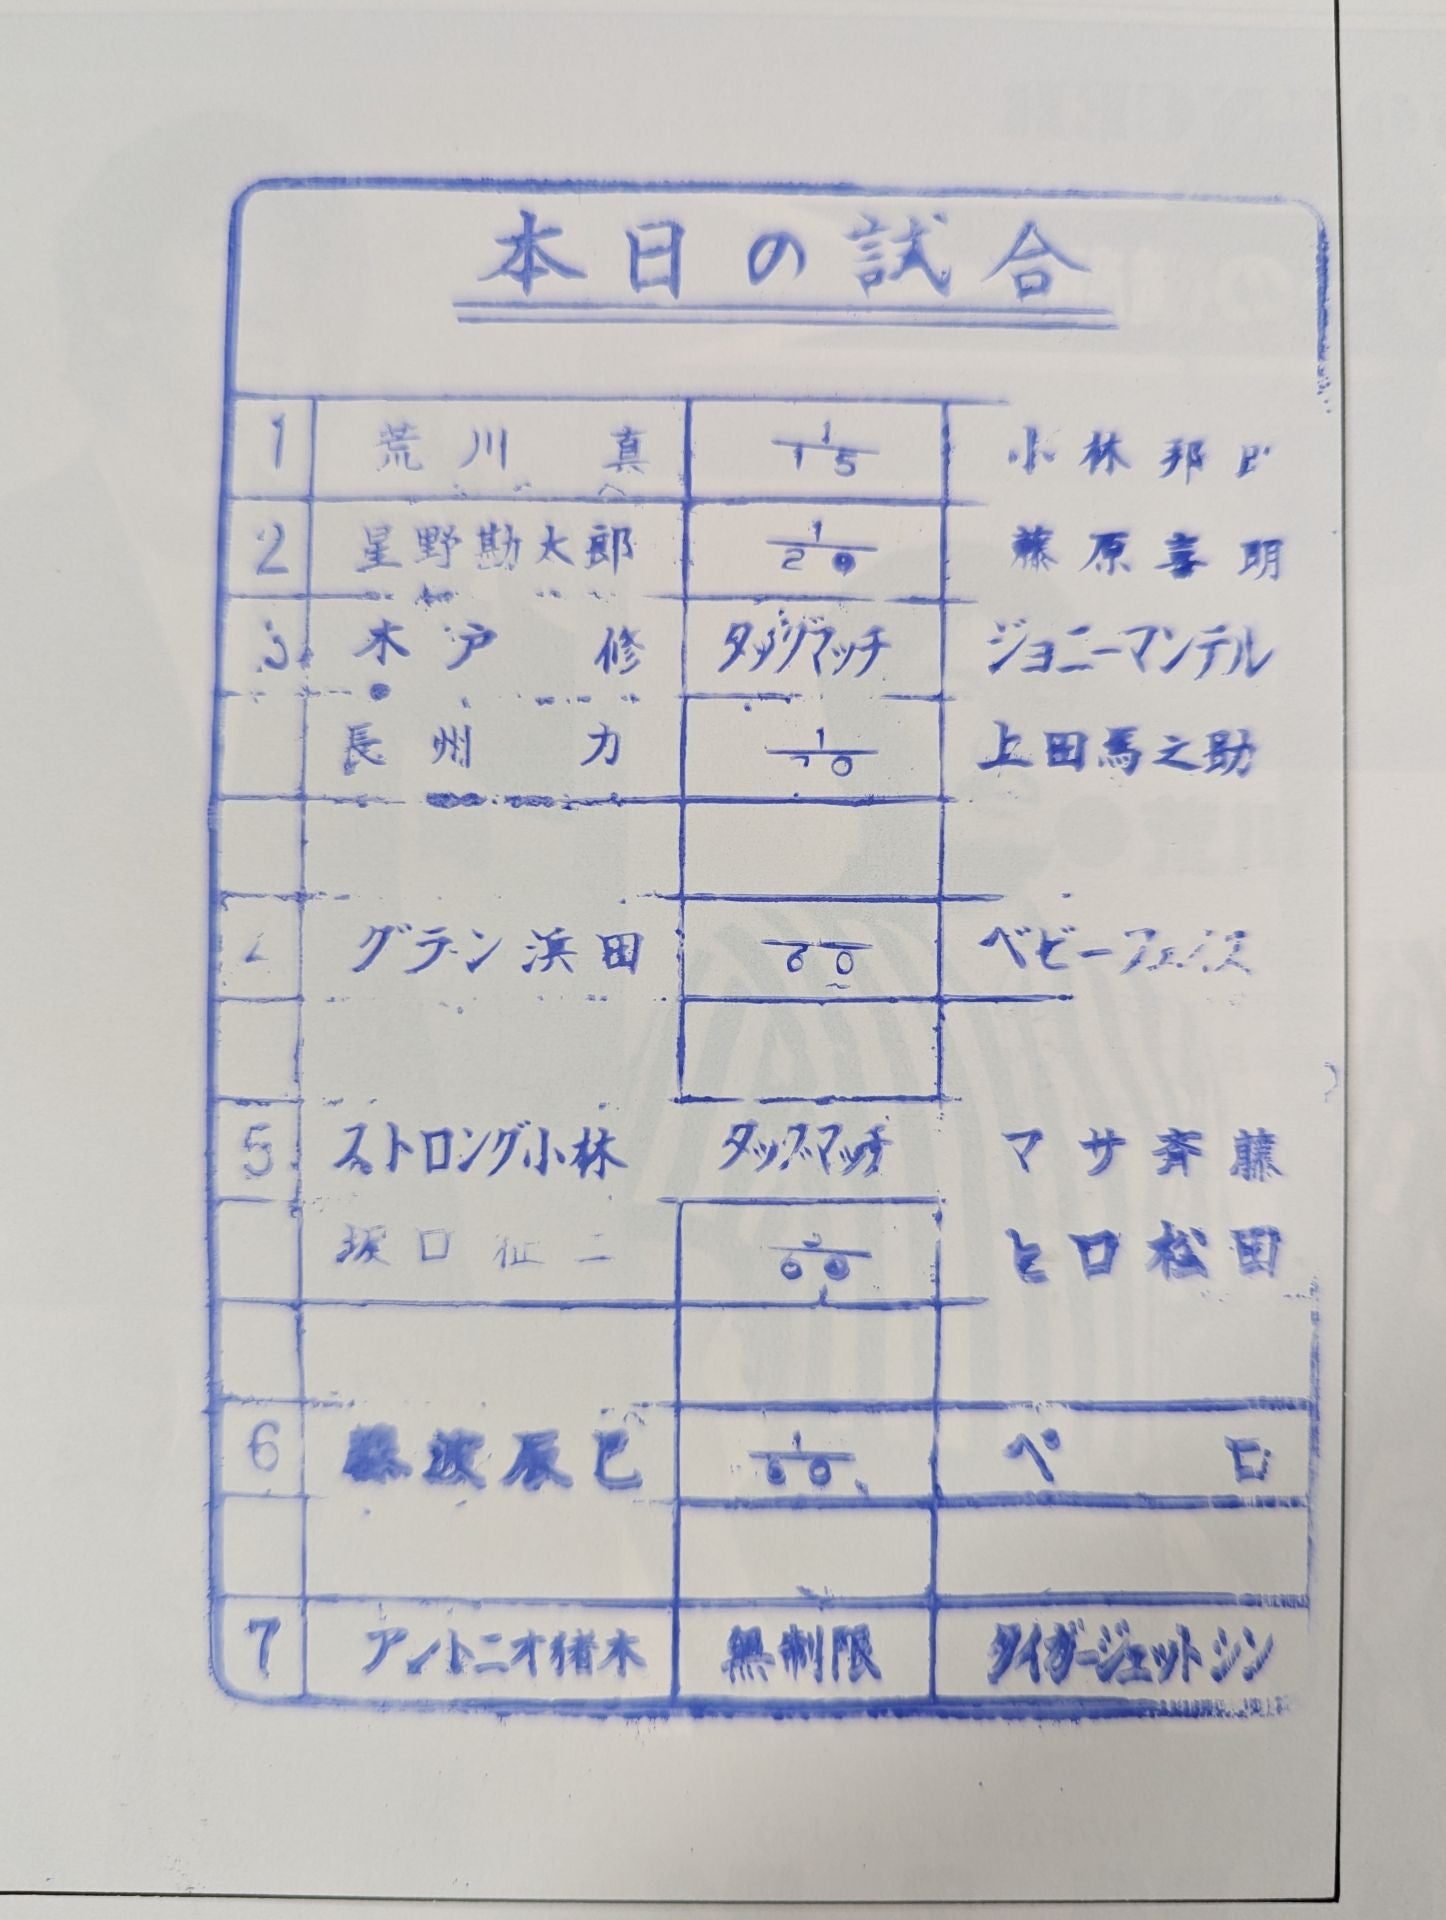 本日の試合
1 荒川 真 1/15 小林邦
2 星野勘太郎 1/20 藤原喜明
3 木戸 修 タッグマッチ ジョニーマンテル
長州 力 1/ 0 上田馬之助
グラン浜田 60 ベビーフェイス
5 ストロング小林 タッグマッチ マサ斉藤
坂口征二 60 ヒロ松田
6 藤波辰巳 1/60 ペロ
7 アントニオ猪木 無制限 タイガージェットシン